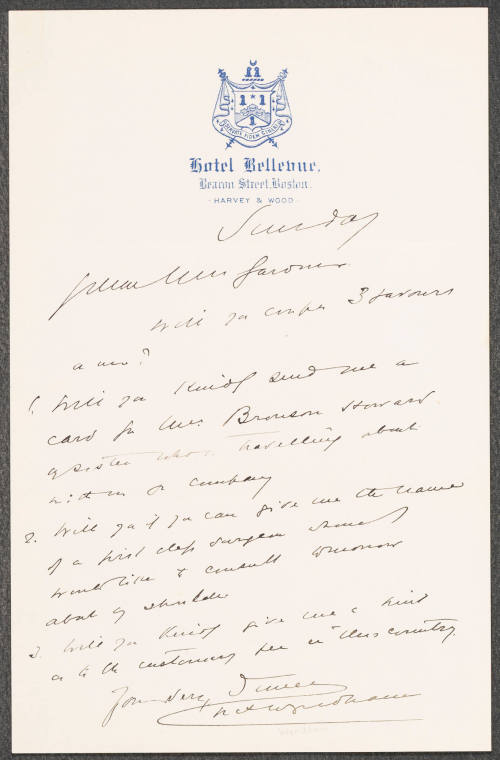 Hotel Bellevue.
Beacon Street, Boston.
- HARVEY & WOOD -
Sunday
Dear Mrs Gardner
Will you confer 3 favours
on me?
1. Will you kindly send me a
card for Mrs. Bronson Howard.
my sister who is travelling about
with us for company
2. Will you if you can give me the name
of a first class surgeon whom I
would like to consult tomorrow
about my shoulder
3 Will you kindly give me a hint
as to the customary fee in this country.
Yours very